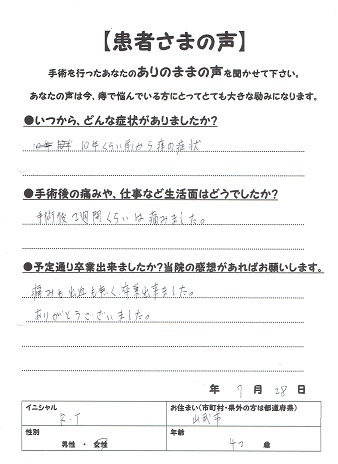 【患者さまの声】
手術を行ったあなたのありのままの声を聞かせて下さい。
あなたの声は今、痔で悩んでいる方にとってとても大きな励みになります。
●いつから、どんな症状がありましたか?
10年くらい前から痔の症状
●手術後の痛みや、仕事など生活面はどうでしたか?
手術後2週間くらいは痛みました。
●予定通り卒業出来ましたか?当院の感想があればお願いします。
痛みも出血も無く、卒業出来ました。
ありがとうございました。
年 9月 28日
イニシャル お住まい(市町村・県外の方は都道府県)
K.T 山武市
性別 年齢
男性・女性 42 歳